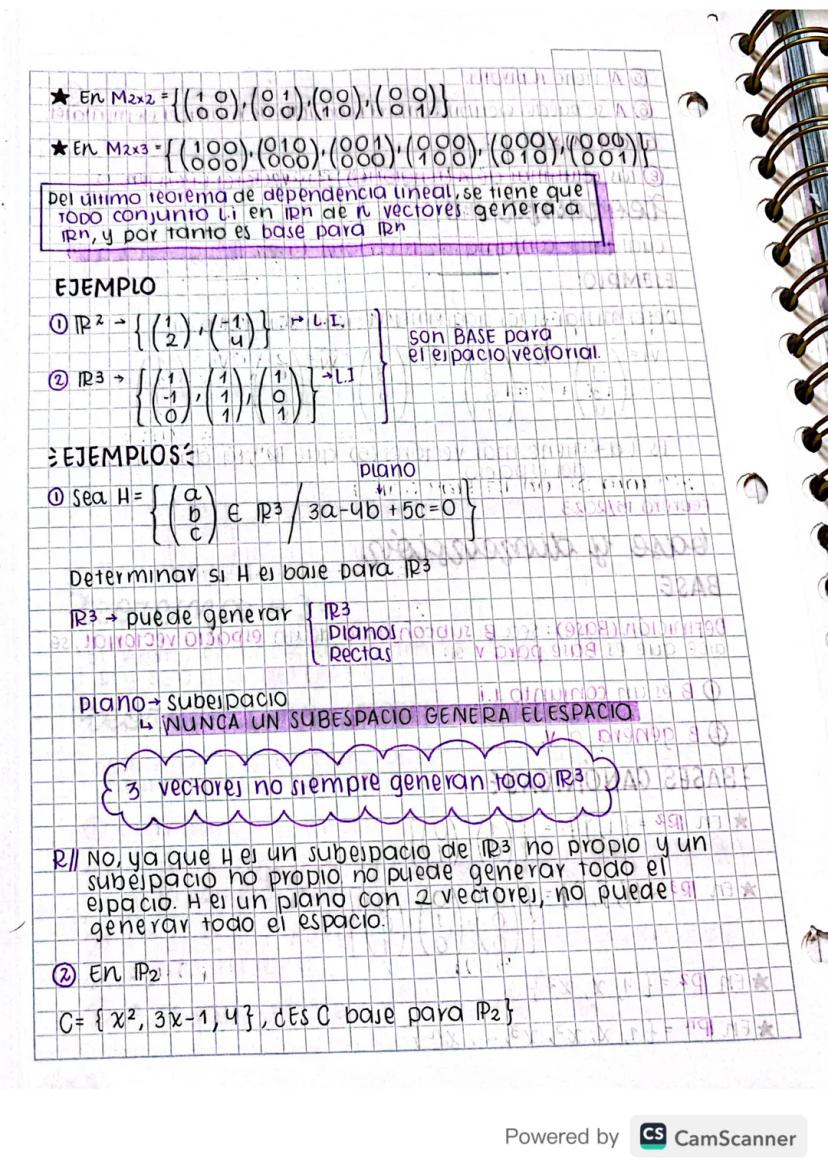 ★ En M2x2 = {(1 0 0 0), (0 1 0 0), (0 0 1 0), (0 0 0 1)}
★ En M2x3 = {(1 0 0 0 0 0), (0 1 0 0 0 0), (0 0 1 0 0 0), (0 0 0 1 0 0), (0 0 0 0 1 0), (0 0 0 0 0 1)}
Del último teorema de dependencia lineal, se tiene que
TODO conjunto L.i en ℝn de n vectores genera a
ℝn, y por tanto es base para ℝn
EJEMPLO
① ℝ² → {(1 2), (-1 4)} → L.I.
son BASE para
el espacio vectorial.
② ℝ3 → {(1 -1 0), (1 1 1), (1 0 1)} → L.I
EJEMPLOS
plano
① Sea H = {(a b c) ∈ ℝ³ / 3a-4b +5c=0}
Determinar si H es base para ℝ3
ℝ3 → puede generar { ℝ3
Planos
Rectas
plano → subespacio
↳ NUNCA UN SUBESPACIO GENERA EL ESPACIO
3 vectores no siempre generan todo ℝ3
R// No, ya que H es un subespacio de ℝ3 no propio y un
subespacio no propio no puede generar todo el
espacio. H es un plano con 2 vectores, no puede
generar todo el espacio.
② En ℙ2
C= { x², 3x-1, 4}, ¿Es C base para ℙ2}
Powered by CS CamScanner